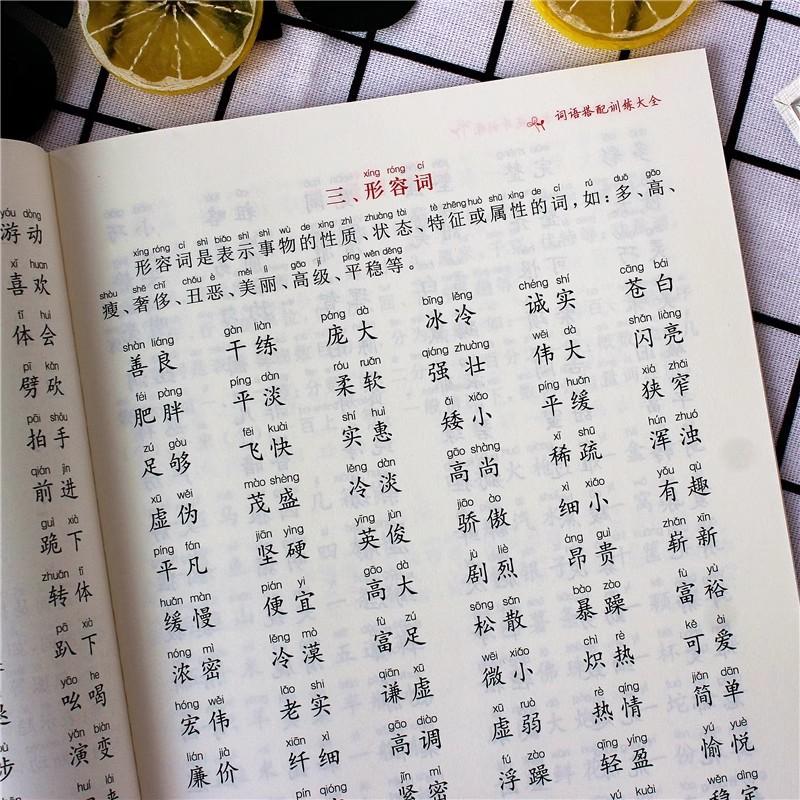 yóu dòng
游动
xǐ huan
喜欢
tǐ huì
体会
pī kǎn
劈砍
pāi shǒu
拍手
qián jìn
前进
guì xià
跪下
zhuǎn tǐ
转体
pā xià
趴下
yāo he
吆喝
yǎn biàn
演变
huí lái
词语搭配训练大全
xíng róng cí
三、形容词
xíng róng cí shì biǎo shì shì wù de xìng zhì zhuàng tài tè zhēng huò shǔ xìng de cí rú duō gāo
形容词是表示事物的性质、状态、特征或属性的词,如:多、高、
shòu shē chǐ chǒu è měi lì gāo jí píng wěn děng
瘦、奢侈、丑恶、美丽、高级、平稳等。
shàn liáng gàn liàn páng dà bīng lěng chéng shí cāng bái
善良 干练 庞大 冰冷 诚实 苍白
féi pàng píng dàn róu ruǎn qiáng zhuàng wěi dà shǎn liàng
肥胖 平淡 柔软 强壮 伟大 闪亮
zú gòu fēi kuài shí huì ǎi xiǎo píng huǎn xiá zhǎi
足够 飞快 实惠 矮小 平缓 狭窄
xū wěi mào shèng lěng dàn gāo shàng xī shū hún zhuó
虚伪 茂盛 冷淡 高尚 稀疏 浑浊
píng fán jiān yìng yīng jùn jiāo ào xì xiǎo yǒu qù
平凡 坚硬 英俊 骄傲 细小 有趣
huǎn màn pián yi gāo dà jù liè áng guì zhǎn xīn
缓慢 便宜 高大 剧烈 昂贵 崭新
nóng mì lěng mò fù zú sōng sǎn bào zào fù yù
浓密 冷漠 富足 松散 暴躁 富裕
hóng wěi lǎo shi qiān xū wēi xiǎo chì rè kě ài
宏伟 老实 谦虚 微小 炽热 可爱
lián jià xiān xì gāo diào xū ruò rè qíng jiǎn dān
廉价 纤细 高调 虚弱 热情 简单
pín qióng jǐn mì fú zào qīng yíng yú yuè
紧密 浮躁 轻盈 愉悦
yú kuài wěn dìng
稳定